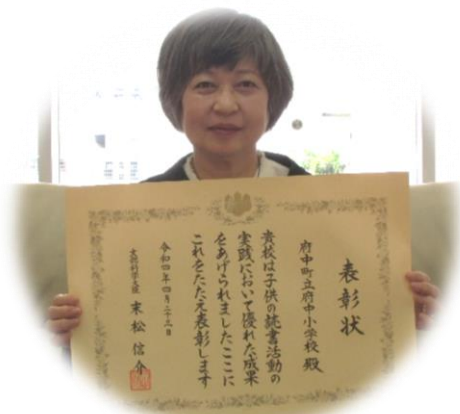 表彰状
府中町立府中小学校 殿
貴校は子供の読書活動の
実践において優れた成果
をあげられましたここに
これをたたえ表彰します
令和四年四月二十三日
文部科学大臣 末松信介